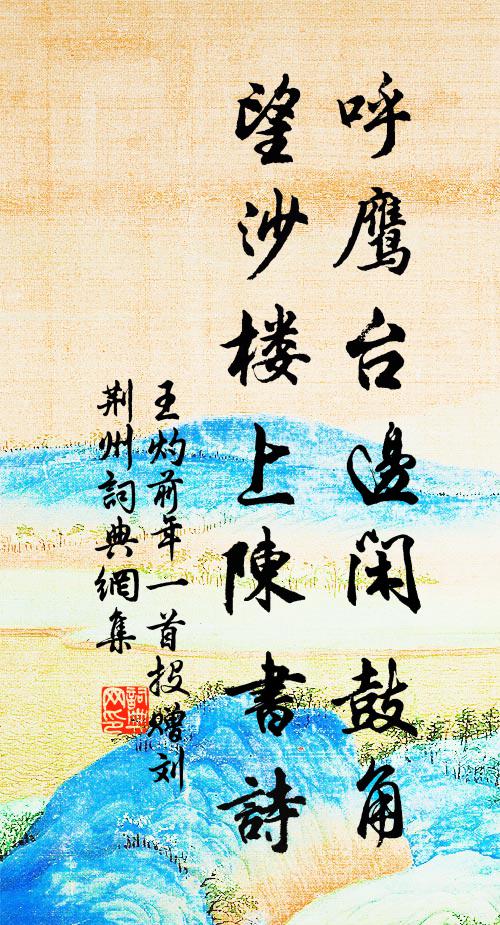 呼鹰台邊闲鼓角
望沙楼上陳書詩
王灼前年一首投赠刘
荆州詞典網集